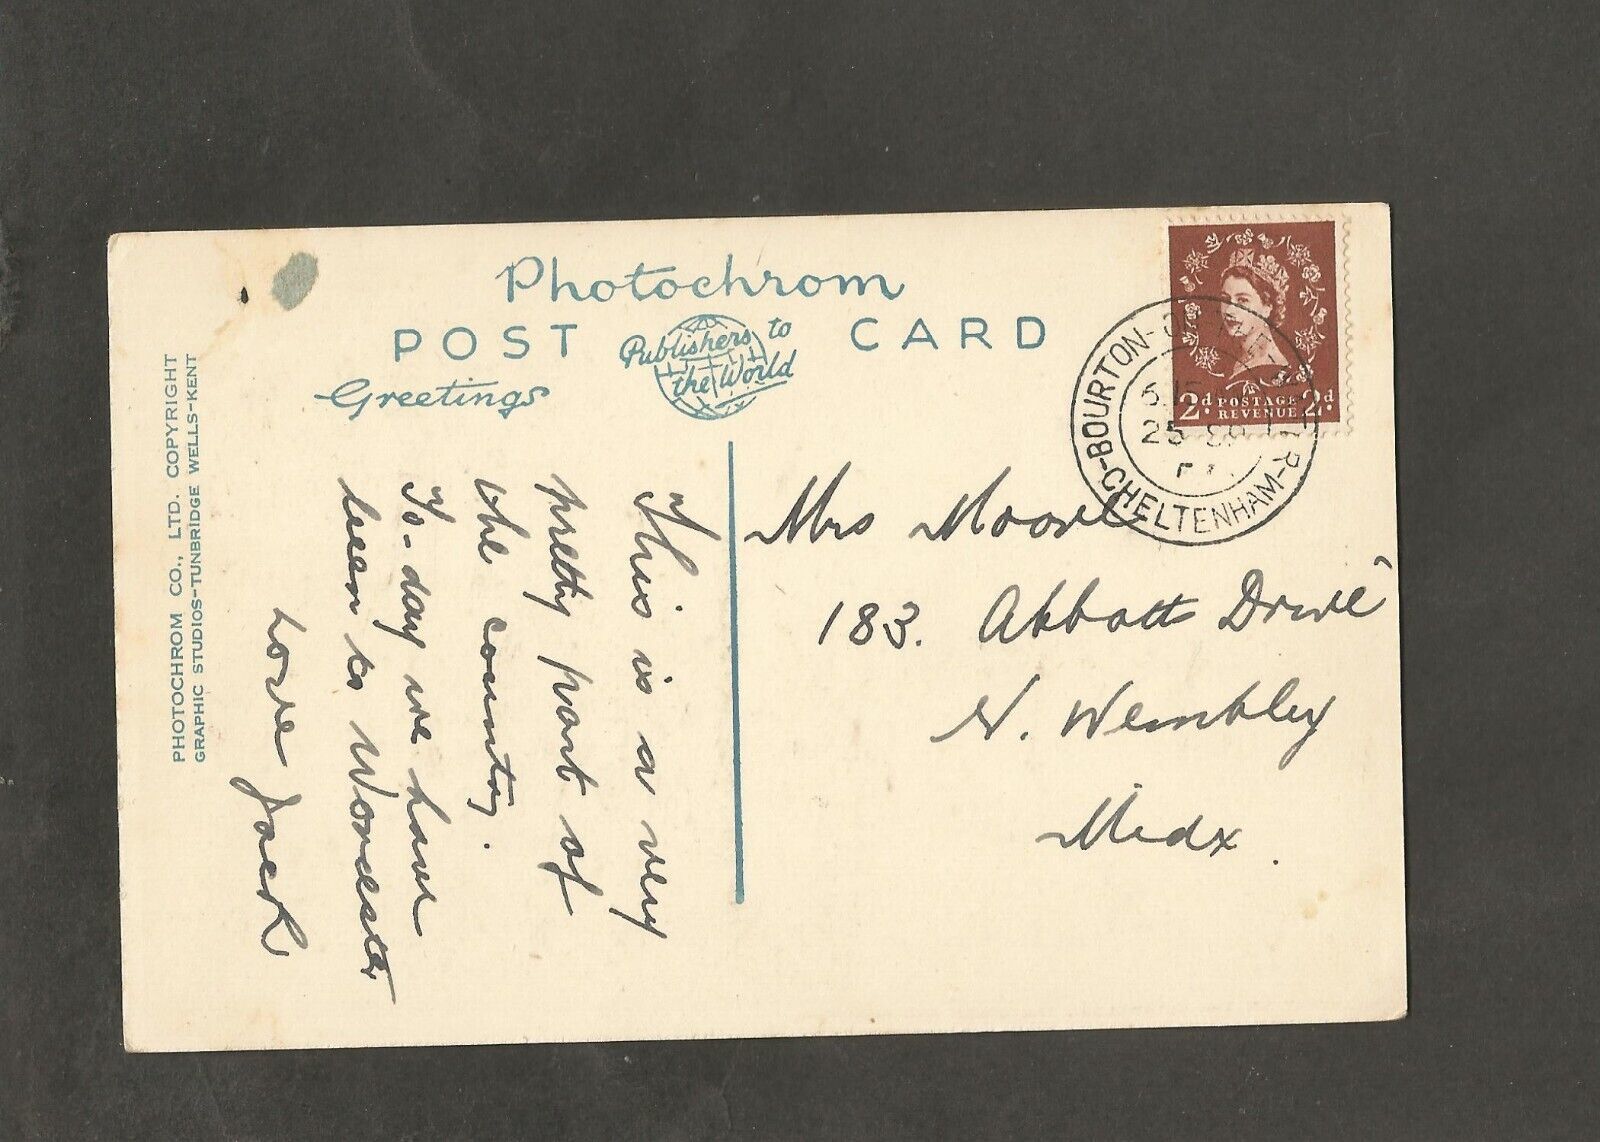 Photochrom
POST CARD
Publishers to
the World
Greetings
PHOTOCHROM CO., LTD. COPYRIGHT
GRAPHIC STUDIOS-TUNBRIDGE WELLS-KENT
This is a very
pretty part of
the country.
To-day we have
been to Worcester
Love Jack
2d POSTAGE 2d
REVENUE
BOURTON-ON-THE-WATER-CHELTENHAM
25
Mrs Moore
183. Abbotts Drive
N. Wembley
Midx.